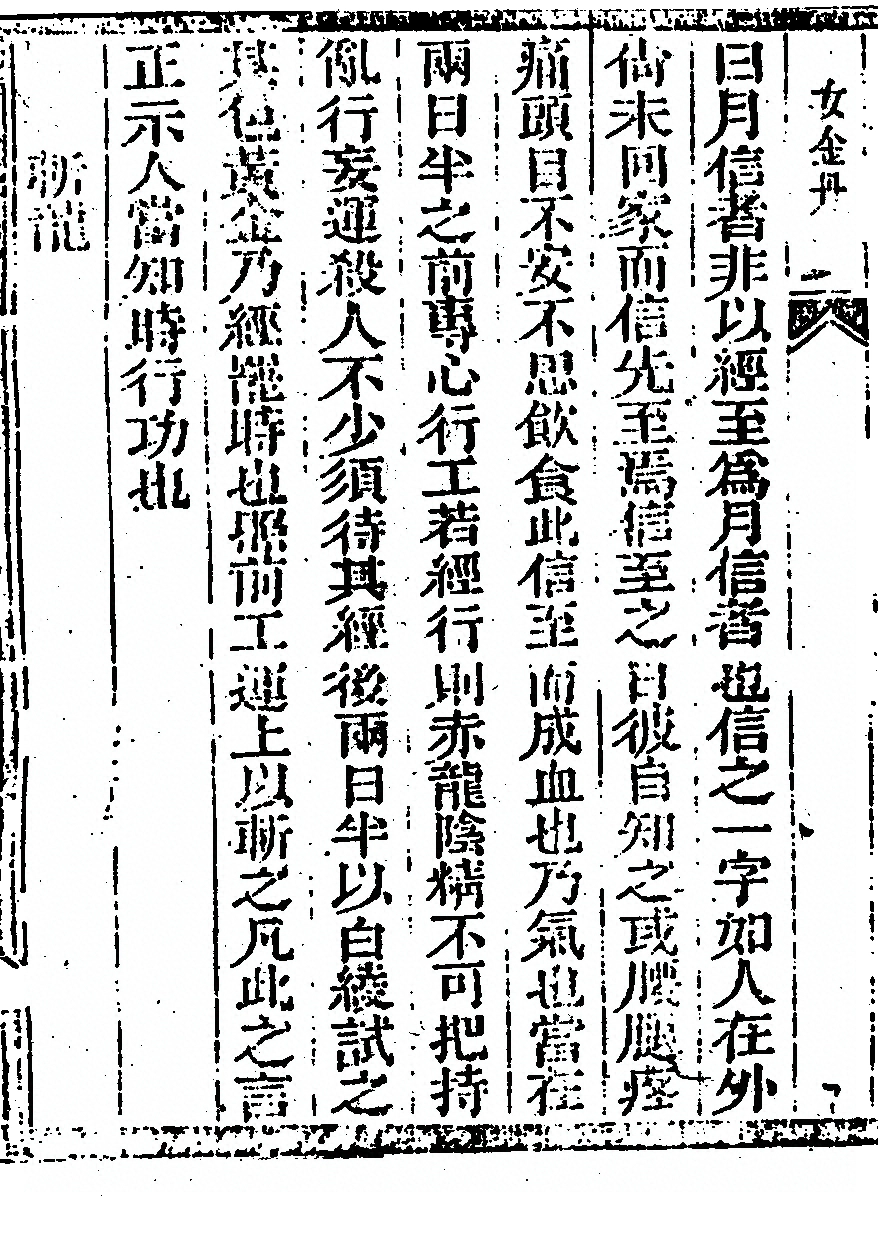 女金丹
二
曰月信者非以經至爲月信者也信之一字如人在外
尙未回家而信先至焉信至之日彼自知之或腰腿疼
痛頭目不安不思飲食此信至而成血也乃氣也當在
兩日半之前專心行工若經行則赤龍陰精不可把持
亂行妄運殺人不少須待其經後兩日半以白綾試之
其色黃金乃經罷時也照前工運上以斬之凡此之言
正示人當知時行功也
斬龍